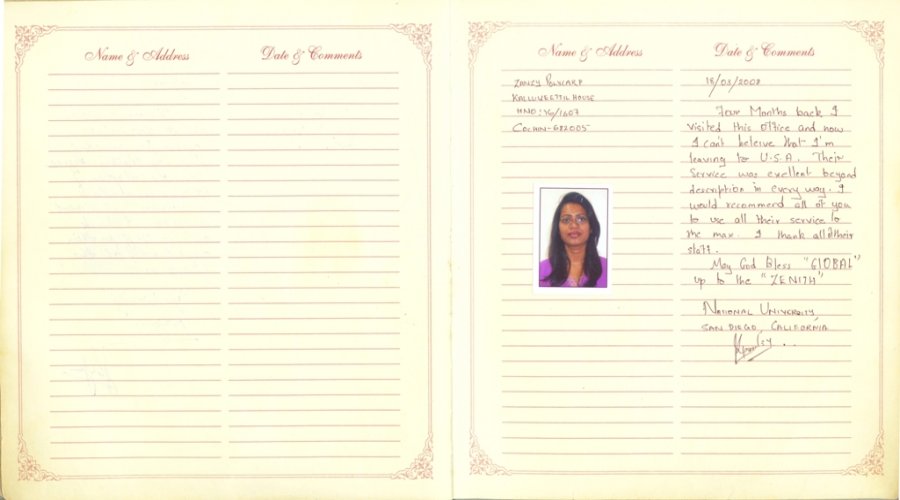 Name & Address
Date & Comments
Name & Address
Date & Comments
ZANZY POLYCARP
KALLUVEETTIL HOUSE
HNO: 16/1607
COCHIN-682005
18/03/2008
Four Months back I
visited this office and now
I can't beleive that I'm
leaving to U.S.A. Their
Service was excellent beyond
description in every way. I
would recommend all of you
to use all their service to
the max. I thank all their
staff.
May God Bless "GLOBAL"
up to the "ZENITH"
NATIONAL UNIVERSITY,
SAN DIEGO, CALIFORNIA